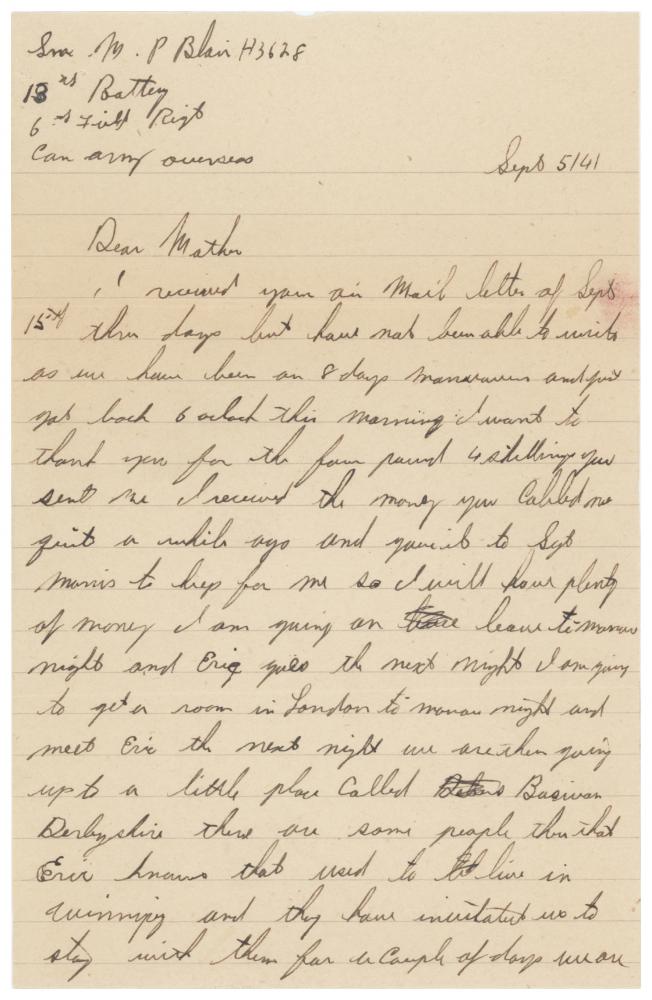 Gnr. M. P Blair H3628
13 rd Battery
6 th Field Rigt
Can army overseas
Sept 5/41
Dear Mother
I received your air Mail letter of Sept
15th three days but have not been able to write
as we have been on 8 days manauvers and just
got back 6 oclock this morning I want to
thank you for the four pound 4 shillings you
sent me I received the money you Cabled me
quit a while ago and gave it to Sgt
Morris to keep for me so I will have plenty
of money I am going on leave to morrow
night and Eric goes the next night I am going
to get a room in London to morrow night and
meet Eric the next night we are then going
up to a little place Called
Derbyshire there are some people there that
Eric knows that used to live in
Winnipeg and they have invitated us to
stay with them for a Couple of days we are